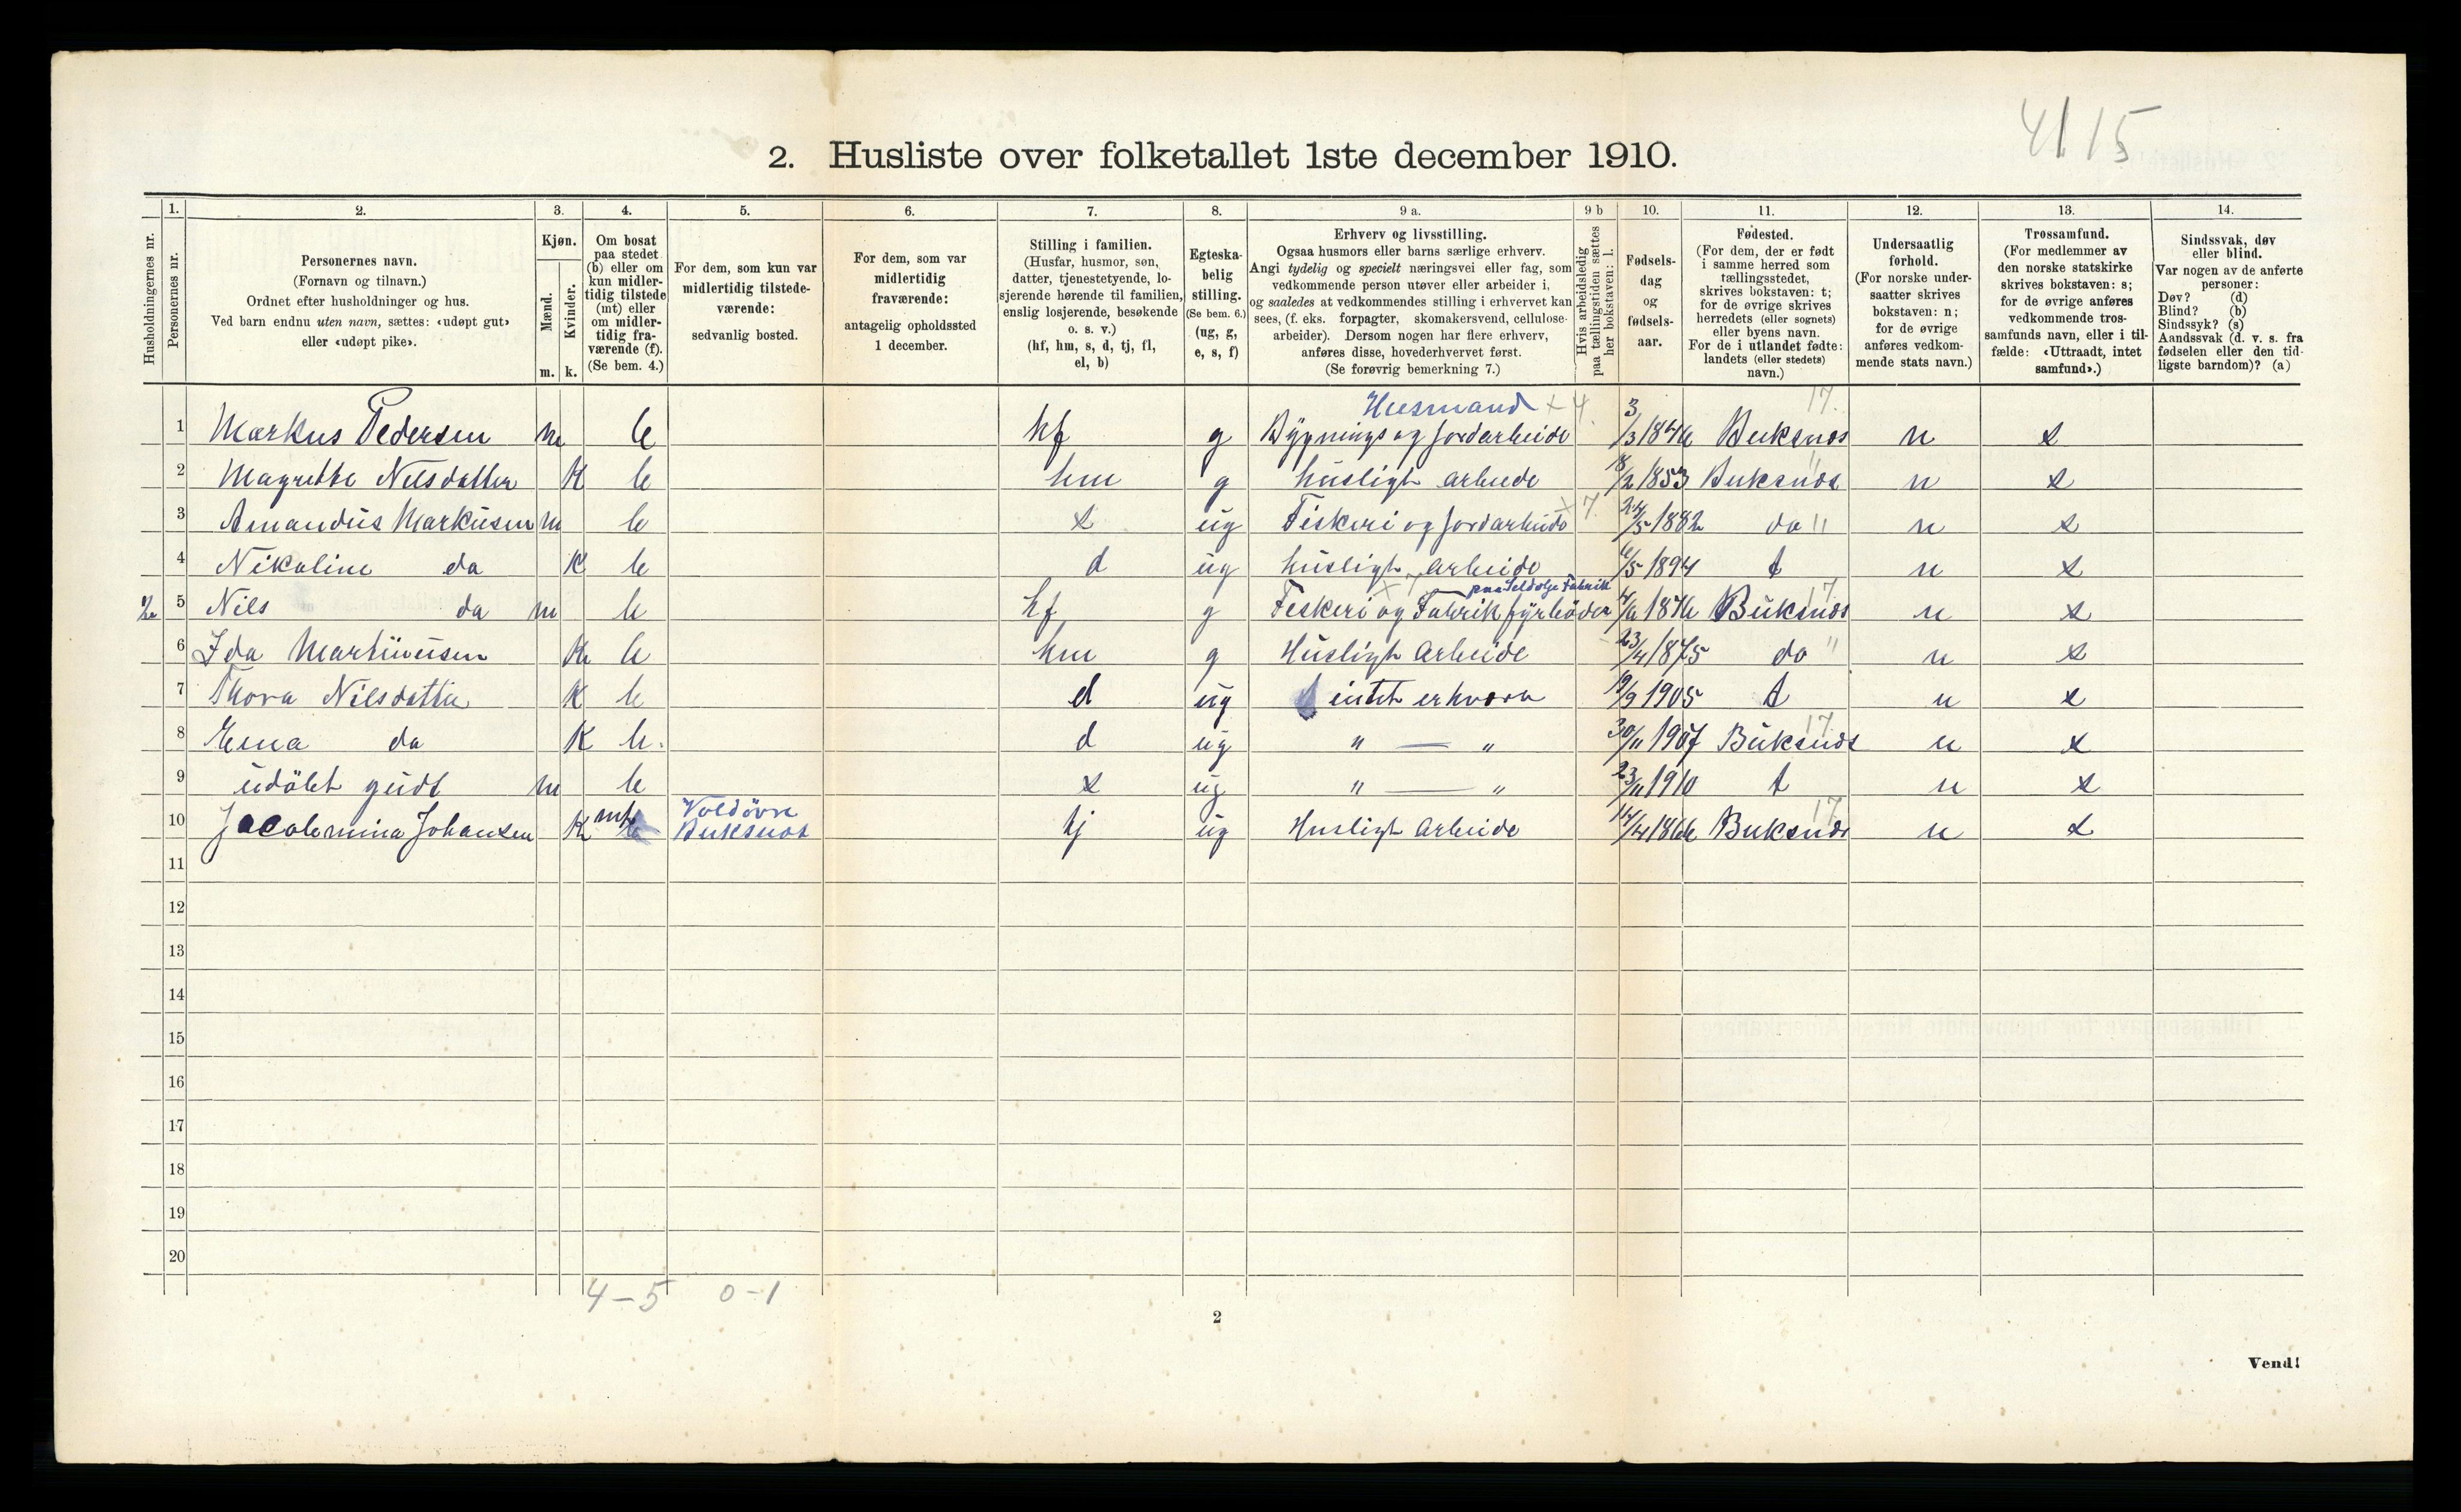 4115
2. Husliste over folketallet 1ste december 1910.
1. 2. 3. 4. 5. 6. 7. 8. 9 a. 9 b 10. 11. 12. 13. 14.
Husholdningernes nr.
Personernes nr.
Personernes navn.
(Fornavn og tilnavn.)
Ordnet efter husholdninger og hus.
Ved barn endnu uten navn, sættes: «udøpt gut»
eller «udøpt pike».
Kjøn.
Mænd.
Kvinder.
m. k.
Om bosat
paa stedet
(b) eller om
kun midler-
tidig tilstede
(mt) eller
om midler-
tidig fra-
værende (f).
(Se bem. 4.)
For dem, som kun var
midlertidig tilstede-
værende:
sedvanlig bosted.
For dem, som var
midlertidig
fraværende:
antagelig opholdssted
1 december.
Stilling i familien.
(Husfar, husmor, søn,
datter, tjenestetyende, lo-
sjerende hørende til familien,
enslig losjerende, besøkende
o. s. v.)
(hf, hm, s, d, tj, fl,
el, b)
Egteska-
belig
stilling.
(Se bem. 6.)
(ug, g,
e, s, f)
Erhverv og livsstilling.
Ogsaa husmors eller barns særlige erhverv.
Angi tydelig og specielt næringsvei eller fag, som
vedkommende person utøver eller arbeider i,
og saaledes at vedkommendes stilling i erhvervet kan
sees, (f. eks. forpagter, skomakersvend, cellulose-
arbeider). Dersom nogen har flere erhverv,
anføres disse, hovederhvervet først.
(Se forøvrig bemerkning 7.)
Hvis arbeidsledig
paa tællingstiden sættes
her bokstaven: l.
Fødsels-
dag
og
fødsels-
aar.
Fødested.
(For dem, der er født
i samme herred som
tællingsstedet,
skrives bokstaven: t;
for de øvrige skrives
herredets (eller sognets)
eller byens navn.
For de i utlandet fødte:
landets (eller stedets)
navn.)
Undersaatlig
forhold.
(For norske under-
saatter skrives
bokstaven: n;
for de øvrige
anføres vedkom-
mende stats navn.)
Trossamfund.
(For medlemmer av
den norske statskirke
skrives bokstaven: s;
for de øvrige anføres
vedkommende tros-
samfunds navn, eller i til-
fælde: «Uttraadt, intet
samfund».)
Sindssvak, døv
eller blind.
Var nogen av de anførte
personer:
Døv? (d)
Blind? (b)
Sindssyk? (s)
Aandssvak (d. v. s. fra
fødselen eller den tid-
ligste barndom)? (a)
Husmand x 4. 17.
1 Markus Pedersen m b hf g Bygnings og Jordarbeide 3/3 1846 Buksnes n s
2 Magrethe Nilsdatter K b hm g husligt arbeide 18/2 1853 Buksnes " n s
3 Amandus Markusen m b s ug Fiskeri og Jordarbeide x 7. 24/5 1882 do " n s
4 Nikoline do K b d ug husligt arbeide 6/5 1894 t n s
paa Sildolje Fabrik
2 5 Nils do m b hf g Fiskeri og Fabrik fyrböder x 7 4/6 1876 Buksnes 17 n s
6 Ida Martinusen K b hm g Husligt Arbeide 23/4 1875 do " n s
7 Thora Nilsdatter K b d ug intet erhverv 19/9 1905 t n s
8 Erna do K b. d ug " — " 30/11 1907 Buksnes 17 n s
9 udöbt gudt m b s ug " — " 23/11 1910 t n s
10 Jacobmina Johansen K mt Buksnes tj ug Husligt Arbeide 14/4 1866 Buksnes 17 n s
11
12
13
14
15
16
17
18
19
20
4 – 5 0 – 1
2
Vend!